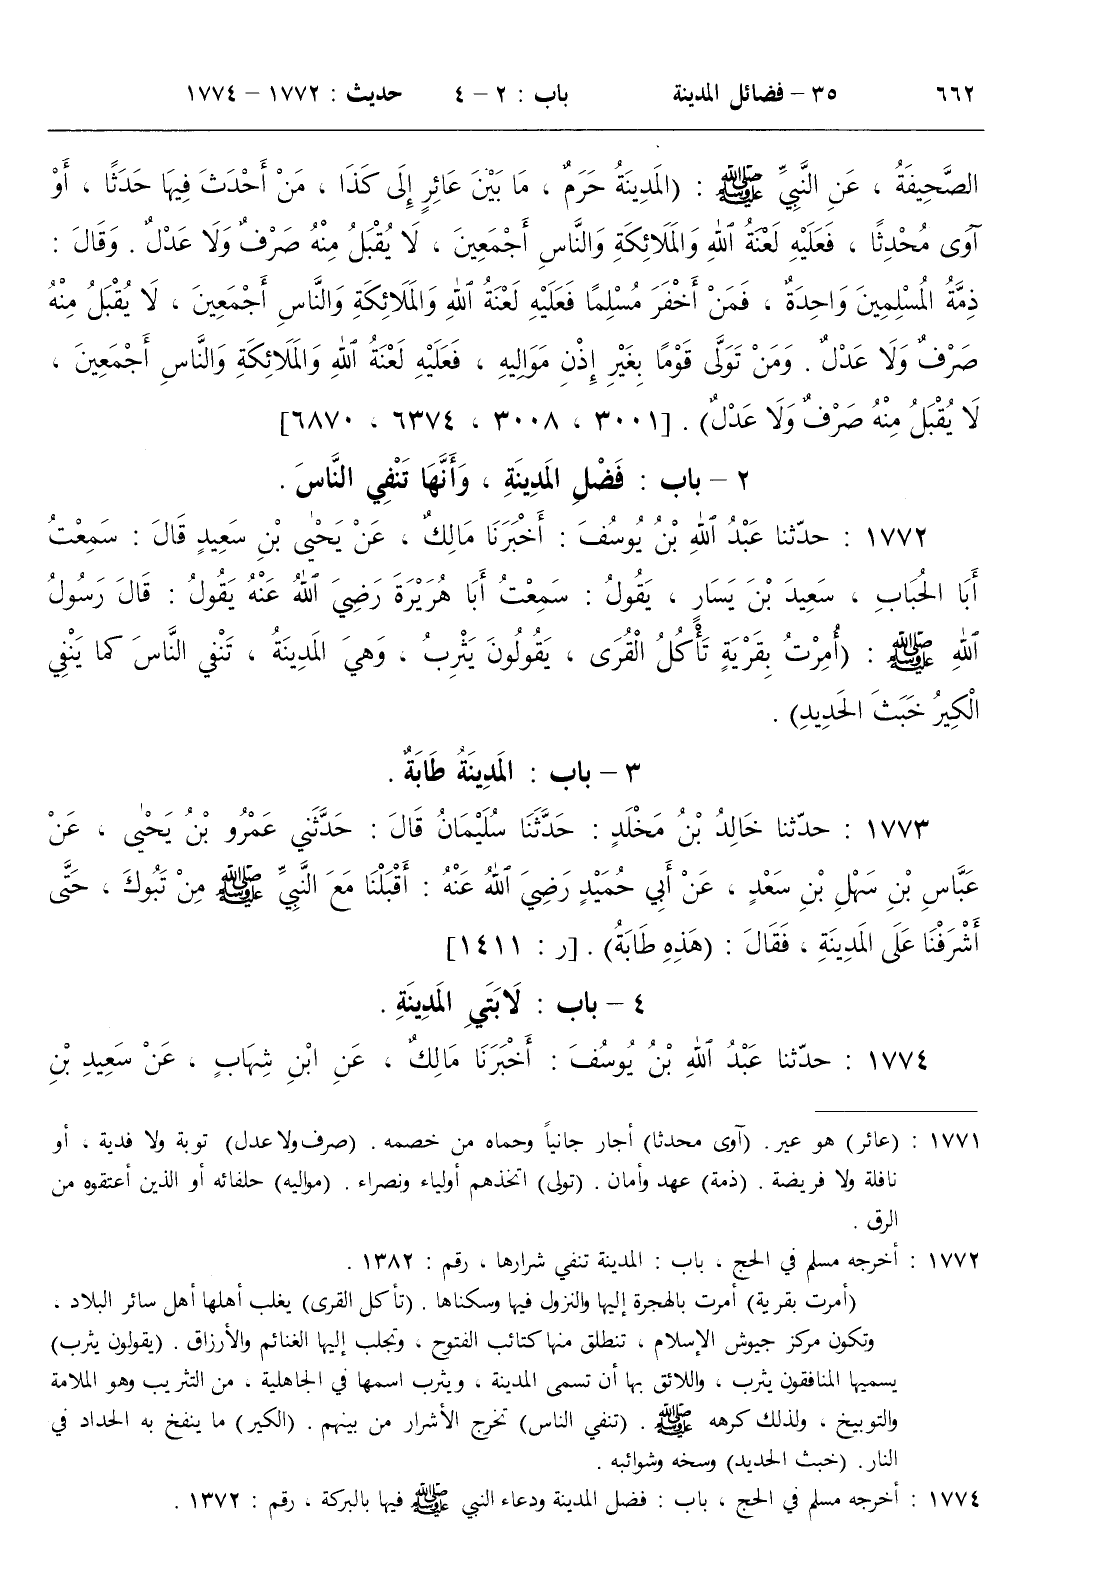 ٦٦٢ ٣٥ – فضائل المدينة باب : ٢ – ٤ حديث : ١٧٧٢ – ١٧٧٤
الصَّحِيفَةُ ، عَنِ النَّبِيِّ ﷺ : (المَدِينَةُ حَرَمٌ ، مَا بَيْنَ عَائِرٍ إِلَى كَذَا ، مَنْ أَحْدَثَ فِيهَا حَدَثًا ، أَوْ
آوَى مُحْدِثًا ، فَعَلَيْهِ لَعْنَةُ اللهِ وَالمَلَائِكَةِ وَالنَّاسِ أَجْمَعِينَ ، لَا يُقْبَلُ مِنْهُ صَرْفٌ وَلَا عَدْلٌ . وَقَالَ :
ذِمَّةُ المُسْلِمِينَ وَاحِدَةٌ ، فَمَنْ أَخْفَرَ مُسْلِمًا فَعَلَيْهِ لَعْنَةُ اللهِ وَالمَلَائِكَةِ وَالنَّاسِ أَجْمَعِينَ ، لَا يُقْبَلُ مِنْهُ
صَرْفٌ وَلَا عَدْلٌ . وَمَنْ تَوَلَّى قَوْمًا بِغَيْرِ إِذْنِ مَوَالِيهِ ، فَعَلَيْهِ لَعْنَةُ اللهِ وَالمَلَائِكَةِ وَالنَّاسِ أَجْمَعِينَ ،
لَا يُقْبَلُ مِنْهُ صَرْفٌ وَلَا عَدْلٌ) . [٣٠٠١ ، ٣٠٠٨ ، ٦٣٧٤ ، ٦٨٧٠]
٢ – باب : فَضْلِ المَدِينَةِ ، وَأَنَّهَا تَنْفِي النَّاسَ .
١٧٧٢ : حدّثنا عَبْدُ اللهِ بْنُ يُوسُفَ : أَخْبَرَنَا مَالِكٌ ، عَنْ يَحْيٰى بْنِ سَعِيدٍ قَالَ : سَمِعْتُ
أَبَا الحُبَابِ ، سَعِيدَ بْنَ يَسَارٍ ، يَقُولُ : سَمِعْتُ أَبَا هُرَيْرَةَ رَضِيَ اللهُ عَنْهُ يَقُولُ : قَالَ رَسُولُ
اللهِ ﷺ : (أُمِرْتُ بِقَرْيَةٍ تَأْكُلُ الْقُرَى ، يَقُولُونَ يَثْرِبُ ، وَهيَ المَدِينَةُ ، تَنْفي النَّاسَ كما يَنْفِي
الْكِيرُ خَبَثَ الحَدِيدِ) .
٣ – باب : المَدِينَةُ طَابَةٌ .
١٧٧٣ : حدّثنا خَالِدُ بْنُ مَخْلَدٍ : حَدَّثَنَا سُلَيْمَانُ قَالَ : حَدَّثَنِي عَمْرُو بْنُ يَحْيٰى ، عَنْ
عَبَّاسِ بْنِ سَهْلِ بْنِ سَعْدٍ ، عَنْ أَبِي حُمَيْدٍ رَضِيَ اللهُ عَنْهُ : أَقْبَلْنَا مَعَ النَّبِيِّ ﷺ مِنْ تَبُوكَ ، حَتَّى
أَشْرَفْنَا عَلَى المَدِينَةِ ، فَقَالَ : (هَذِهِ طَابَةُ) . [ر : ١٤١١]
٤ – باب : لَابَتَيِ المَدِينَةِ .
١٧٧٤ : حدّثنا عَبْدُ اللهِ بْنُ يُوسُفَ : أَخْبَرَنَا مَالِكٌ ، عَنِ ابْنِ شِهَابٍ ، عَنْ سَعِيدِ بْنِ
١٧٧١ : (عائر) هو عير. (آوى محدثا) أجار جانياً وحماه من خصمه . (صرف ولا عدل) توبة ولا فدية ، أو
نافلة ولا فريضة . (ذمة) عهد وأمان . (تولى) اتخذهم أولياء ونصراء . (مواليه) حلفائه أو الذين أعتقوه من
الرق .
١٧٧٢ : أخرجه مسلم في الحج ، باب : المدينة تنفي شرارها ، رقم : ١٣٨٢ .
(أمرت بقرية) أمرت بالهجرة إليها والنزول فيها وسكناها . (تأكل القرى) يغلب أهلها أهل سائر البلاد ،
وتكون مركز جيوش الإسلام ، تنطلق منها كتائب الفتوح ، وتجلب إليها الغنائم والأرزاق . (يقولون يثرب)
يسميها المنافقون يثرب ، واللائق بها أن تسمى المدينة ، ويثرب اسمها في الجاهلية ، من التثريب وهو الملامة
والتوبيخ ، ولذلك كرهه ﷺ . (تنفي الناس) تخرج الأشرار من بينهم . (الكير) ما ينفخ به الحداد في
النار. (خبث الحديد) وسخه وشوائبه .
١٧٧٤ : أخرجه مسلم في الحج ، باب : فضل المدينة ودعاء النبي ﷺ فيها بالبركة ، رقم : ١٣٧٢ .